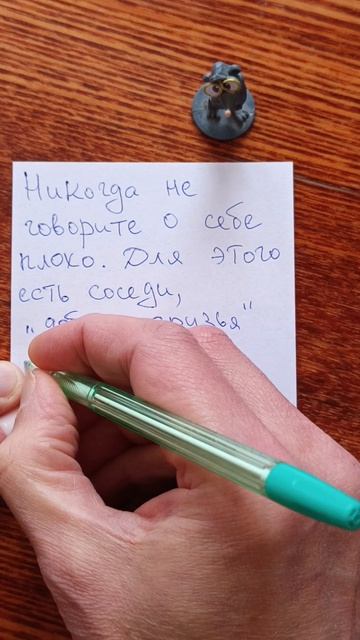 Никогда не
говорите о себе
плохо. Для этого
есть соседи,
друзья"